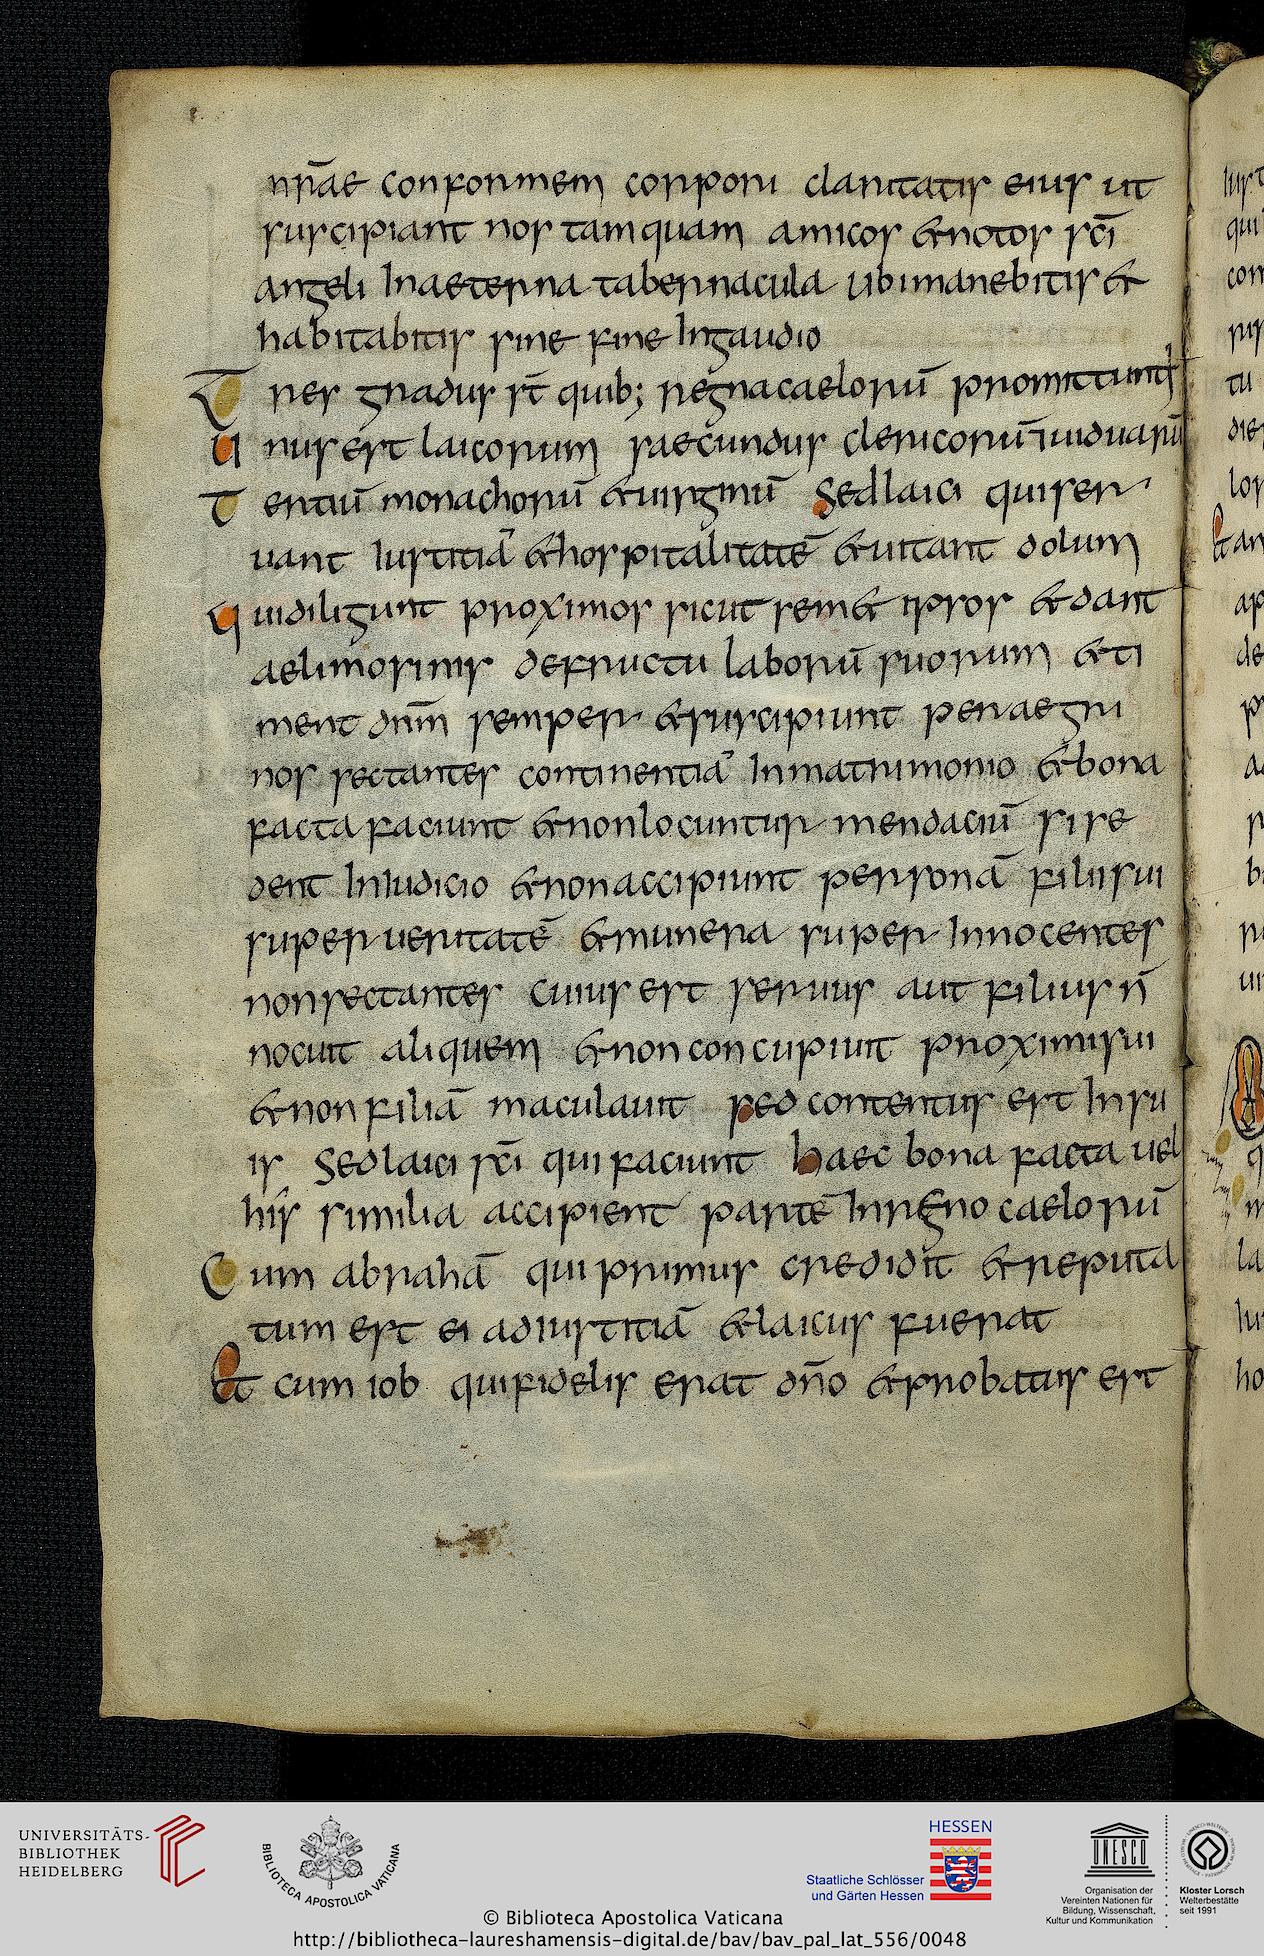 nr̄ae conformem corpori claritatis eius ut
suscipiant nos tamquam amicos & notos sc̄i
angeli in aeterna tabernacula ubi manebitis &
habitabitis sine fine in gaudio
Tres gradus sт̄ quib; regna caeloruū promittunt
Unus est laicorum saecundus clericorū ⁊ uiduarū
Tertiū monachorū & uirginū Sed laici qui ser
uant iustitiā & hospitalitatē & uitant dolum
Qui diligunt proximos sicut sem& ipsos & dant
aelimosinis de fructu laborū suorum & ti
ment dn̄m semper & suscipiunt peraegri
nos sectantes continentiā in matrimonio & bona
facta faciunt & non locuntur mendaciū si se
dent in iudicio & non accipiunt personā filii sui
super ueritatē & munera super innocentes
non sectantes cuius est seruus aut filius n̄
nocuit aliquem & non concupiuit proximi sui
& non filiā maculauit sed contentus est in su
is Sed laici sc̄i qui faciunt haec bona facta uel
his similia accipient partē in regno caelorū
Cum abrahā qui primus credidit & reputa
tum est ei ad iustitiā & laicus fuerat
Et cum iob qui fidelis erat dn̄o & probatus est
UNIVERSITÄTS-
BIBLIOTHEK
HEIDELBERG
BIBLIOTECA APOSTOLICA VATICANA
HESSEN
Staatliche Schlösser
und Gärten Hessen
UNESCO
Organisation der
Vereinten Nationen für
Bildung, Wissenschaft,
Kultur und Kommunikation
Kloster Lorsch
Welterbestätte
seit 1991
© Biblioteca Apostolica Vaticana
http://bibliotheca-laureshamensis-digital.de/bav/bav_pal_lat_556/0048